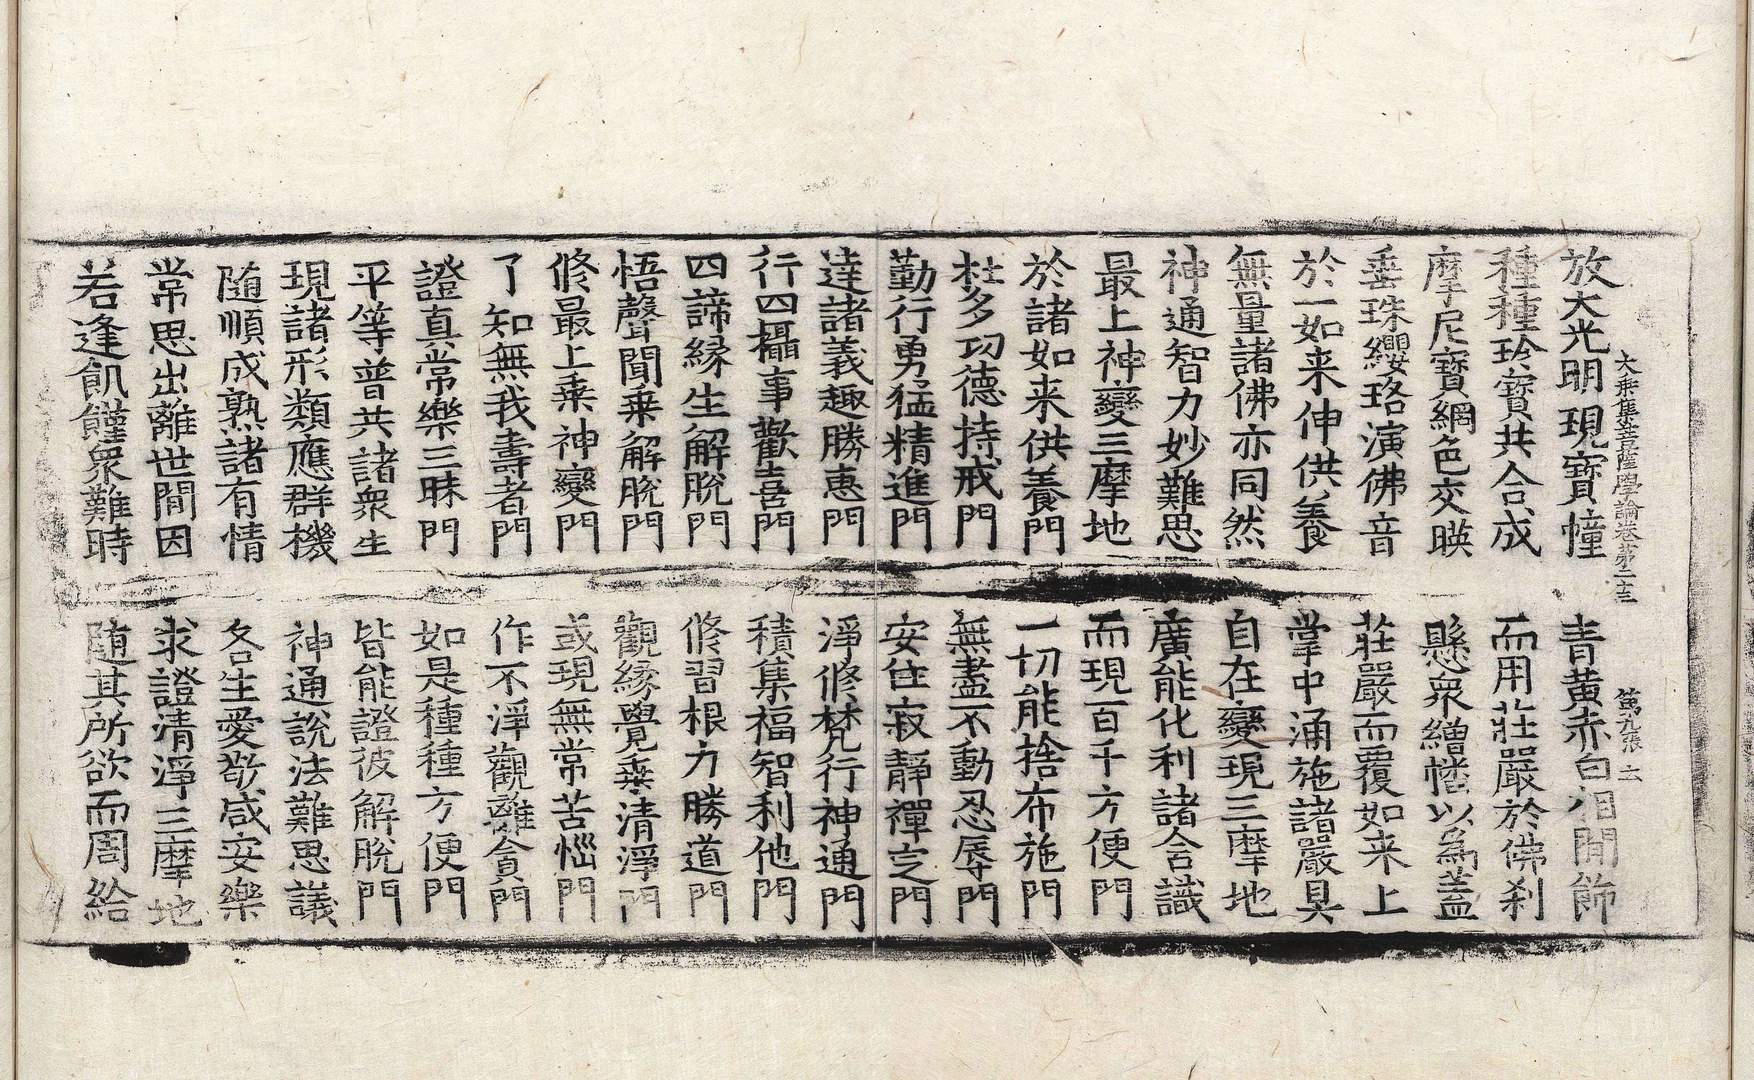 大乘集菩薩學論卷第二十三 第九張
放大光明現寶幢 青黃赤白相間飾
種種珍寶共合成 而用莊嚴於佛刹
摩尼寶網色交暎 懸衆繒幡以為蓋
垂珠纓珞演佛音 莊嚴而覆如来上
於一如来伸供養 掌中涌施諸嚴具
無量諸佛亦同然 自在變現三摩地
神通智力妙難思 廣能化利諸含識
最上神變三摩地 而現百千方便門
於諸如来供養門 一切能捨布施門
杜多功德持戒門 無盡不動忍辱門
勤行勇猛精進門 安住寂靜禪定門
達諸義趣勝惠門 淨修梵行神通門
行四攝事歡喜門 積集福智利他門
四諦縁生解脫門 修習根力勝道門
悟聲聞乘解脫門 觀縁覺乘清淨門
修最上乘神變門 或現無常苦惱門
了知無我壽者門 作不淨觀離貪門
證真常樂三昧門 如是種種方便門
平等普共諸衆生 皆能證彼解脫門
現諸形類應群機 神通說法難思議
随順成熟諸有情 各生愛敬咸安樂
常思出離世間因 求證清淨三摩地
若逢飢饉衆難時 随其所欲而周給